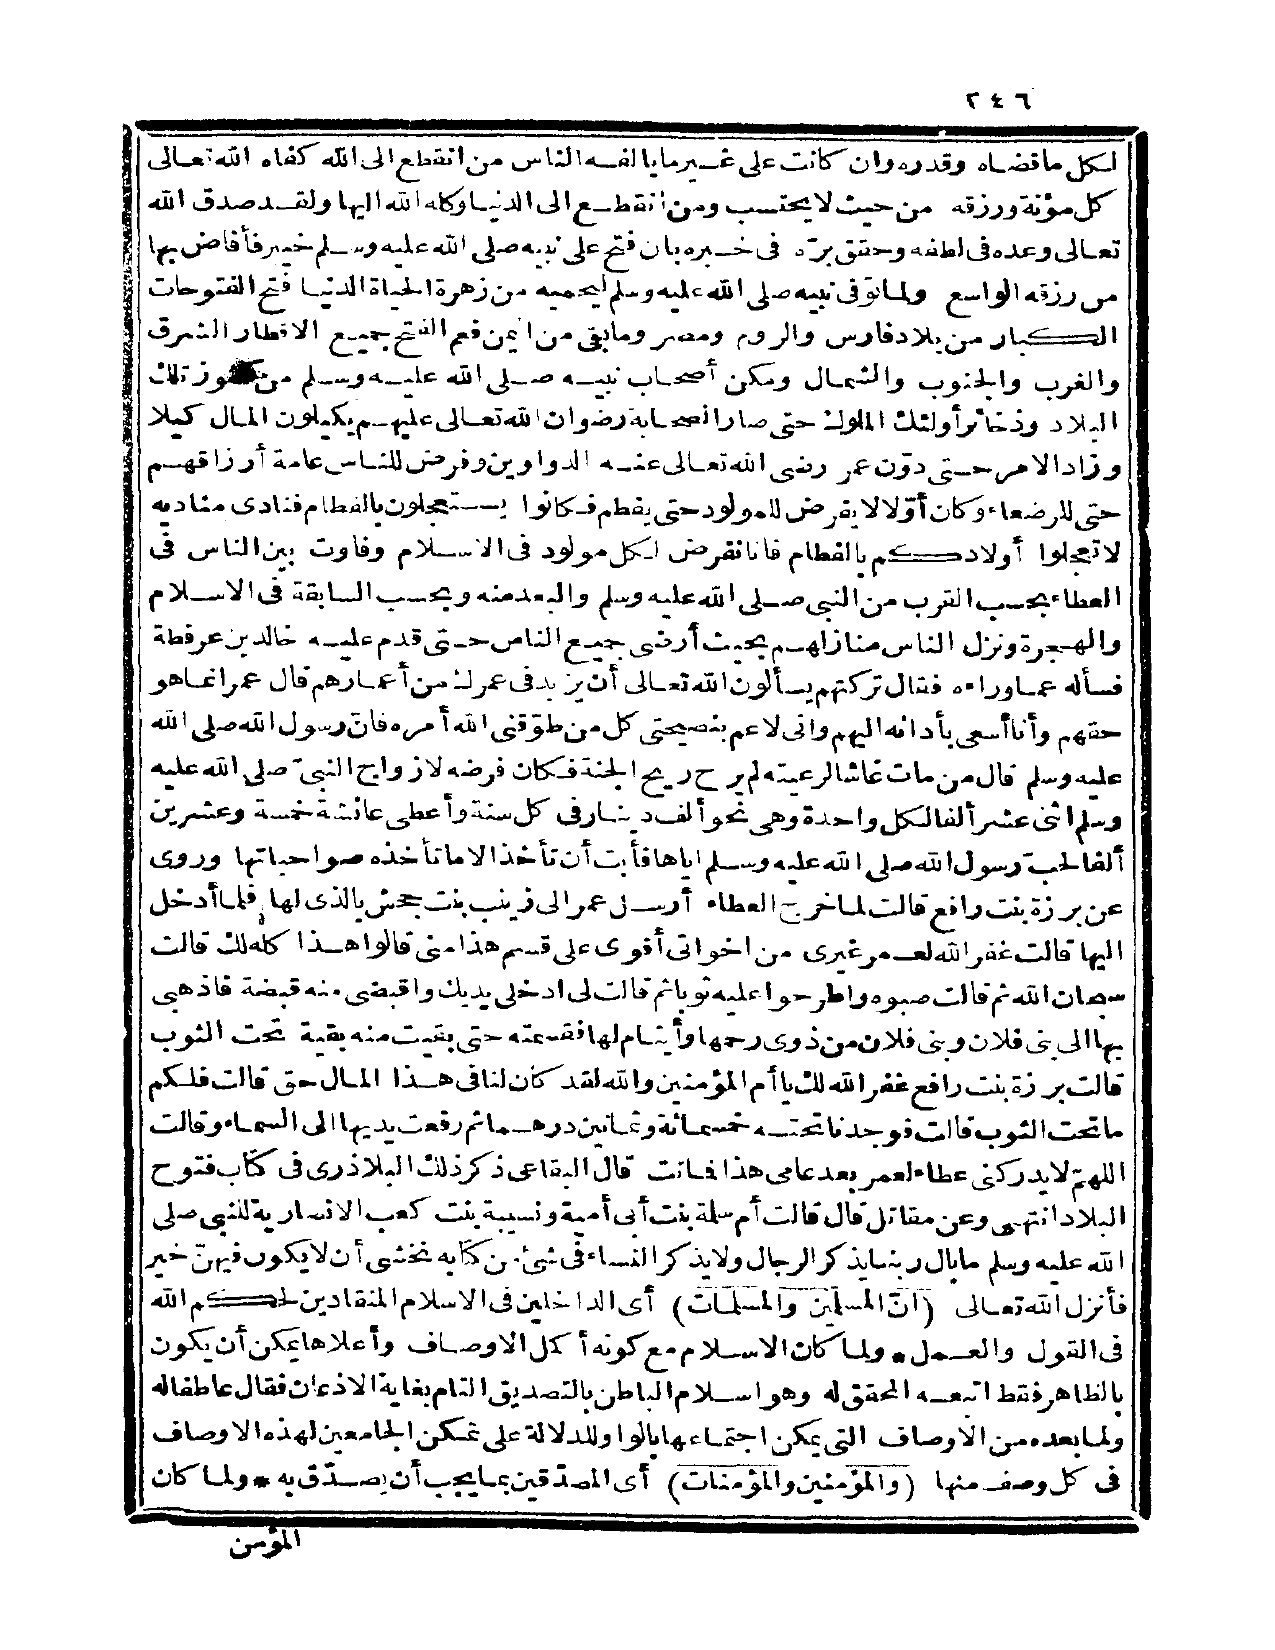 ٢٤٦
لكل ما قضاه وقدره وان كانت على غير ما يألفه الناس من انقطع الى الله كفاه الله تعالى
كل مؤنة ورزقه من حيث لا يحتسب ومن انقطع الى الدنيا وكله الله اليها ولقد صدق الله
تعالى وعده فى لطفه وحقق بره فى خبره بان فتح على نبيه صلى الله عليه وسلم خيبر فأفاض بها
من رزقه الواسع ولما توفى نبيه صلى الله عليه وسلم ليحميه من زهرة الحياة الدنيا فتح الفتوحات
الكبار من بلاد فارس والروم ومصر وما بقى من اليمن فعم الفتح جميع الاقطار الشرق
والغرب والجنوب والشمال ومكن أصحاب نبيه صلى الله عليه وسلم من كنوز تلك
البلاد وذخائر أولئك الملوك حتى صار الصحابة رضوان الله تعالى عليهم يكيلون المال كيلا
وزاد الامر حتى دوّن عمر رضى الله تعالى عنه الدواوين وفرض للناس عامة أرزاقهم
حتى للرضعاء وكان أوّلا لا يفرض للمولود حتى يفطم فكانوا يستعجلون بالفطام فنادى مناديه
لا تعجلوا أولادكم بالفطام فانا نفرض لكل مولود فى الاسلام وفاوت بين الناس فى
العطاء بحسب القرب من النبى صلى الله عليه وسلم والبعد منه وبحسب السابقة فى الاسلام
والهجرة ونزل الناس منازلهم بحيث أرضى جميع الناس حتى قدم عليه خالد بن عرفطة
فسأله عما وراءه فقال تركتهم يسألون الله تعالى أن يزيد فى عمرك من أعمارهم قال عمر انما هو
حقهم وأنا أسعى بأدائه اليهم وانى لاعم بنصيحتى كل من طوّقنى الله أمره فانّ رسول الله صلى الله
عليه وسلم قال من مات غاشا لرعيته لم يرح ريح الجنة فكان فرضه لازواج النبىّ صلى الله عليه
وسلم اثنى عشر ألفا لكل واحدة وهى نحو ألف دينار فى كل سنة وأعطى عائشة خمسة وعشرين
ألفا لحب رسول الله صلى الله عليه وسلم اياها فأبت أن تأخذ الا ما تأخذه صواحباتها وروى
عن برزة بنت رافع قالت لما خرج العطاء أرسل عمر الى زينب بنت جحش بالذى لها فلما أدخل
اليها قالت غفر الله لعمر غيرى من اخواتى أقوى على قسم هذا منى قالوا هذا كله لك قالت
سبحان الله ثم قالت صبوه واطرحوا عليه ثوبا ثم قالت لى ادخلى يديك واقبضى منه قبضة فاذهبى
بها الى بنى فلان وبنى فلان من ذوى رحمها وأيتام لها فقسمته حتى بقيت منه بقية تحت الثوب
قالت برزة بنت رافع غفر الله لك يا أم المؤمنين والله لقد كان لنا فى هذا المال حق قالت فلكم
ما تحت الثوب قالت فوجدنا تحته خمسمائة وثمانين درهما ثم رفعت يديها الى السماء وقالت
اللهمّ لا يدركنى عطاء لعمر بعد عامى هذا فماتت قال البقاعى ذكر ذلك البلاذرى فى كتاب فتوح
البلاد انتهى وعن مقاتل قال قالت أم سلمة بنت أبى أمية ونسيبة بنت كعب الانصارية للنبى صلى
الله عليه وسلم ما بال ربنا يذكر الرجال ولا يذكر النساء فى شئ من كتابه نخشى أن لا يكون فيهنّ خير
فأنزل الله تعالى (انّ المسلمين والمسلمات) أى الداخلين فى الاسلام المنقادين لحكم الله
فى القول والعمل * ولما كان الاسلام مع كونه أكمل الاوصاف وأعلاها يمكن أن يكون
بالظاهر فقط اتبعه المحقق له وهو اسلام الباطن بالتصديق التام بغاية الاذعان فقال عاطفا له
ولما بعده من الاوصاف التى يمكن اجتماعها بالواو للدلالة على تمكن الجامعين لهذه الاوصاف
فى كل وصف منها (والمؤمنين والمؤمنات) أى المصدّقين بما يجب أن يصدّق به * ولما كان
المؤمن